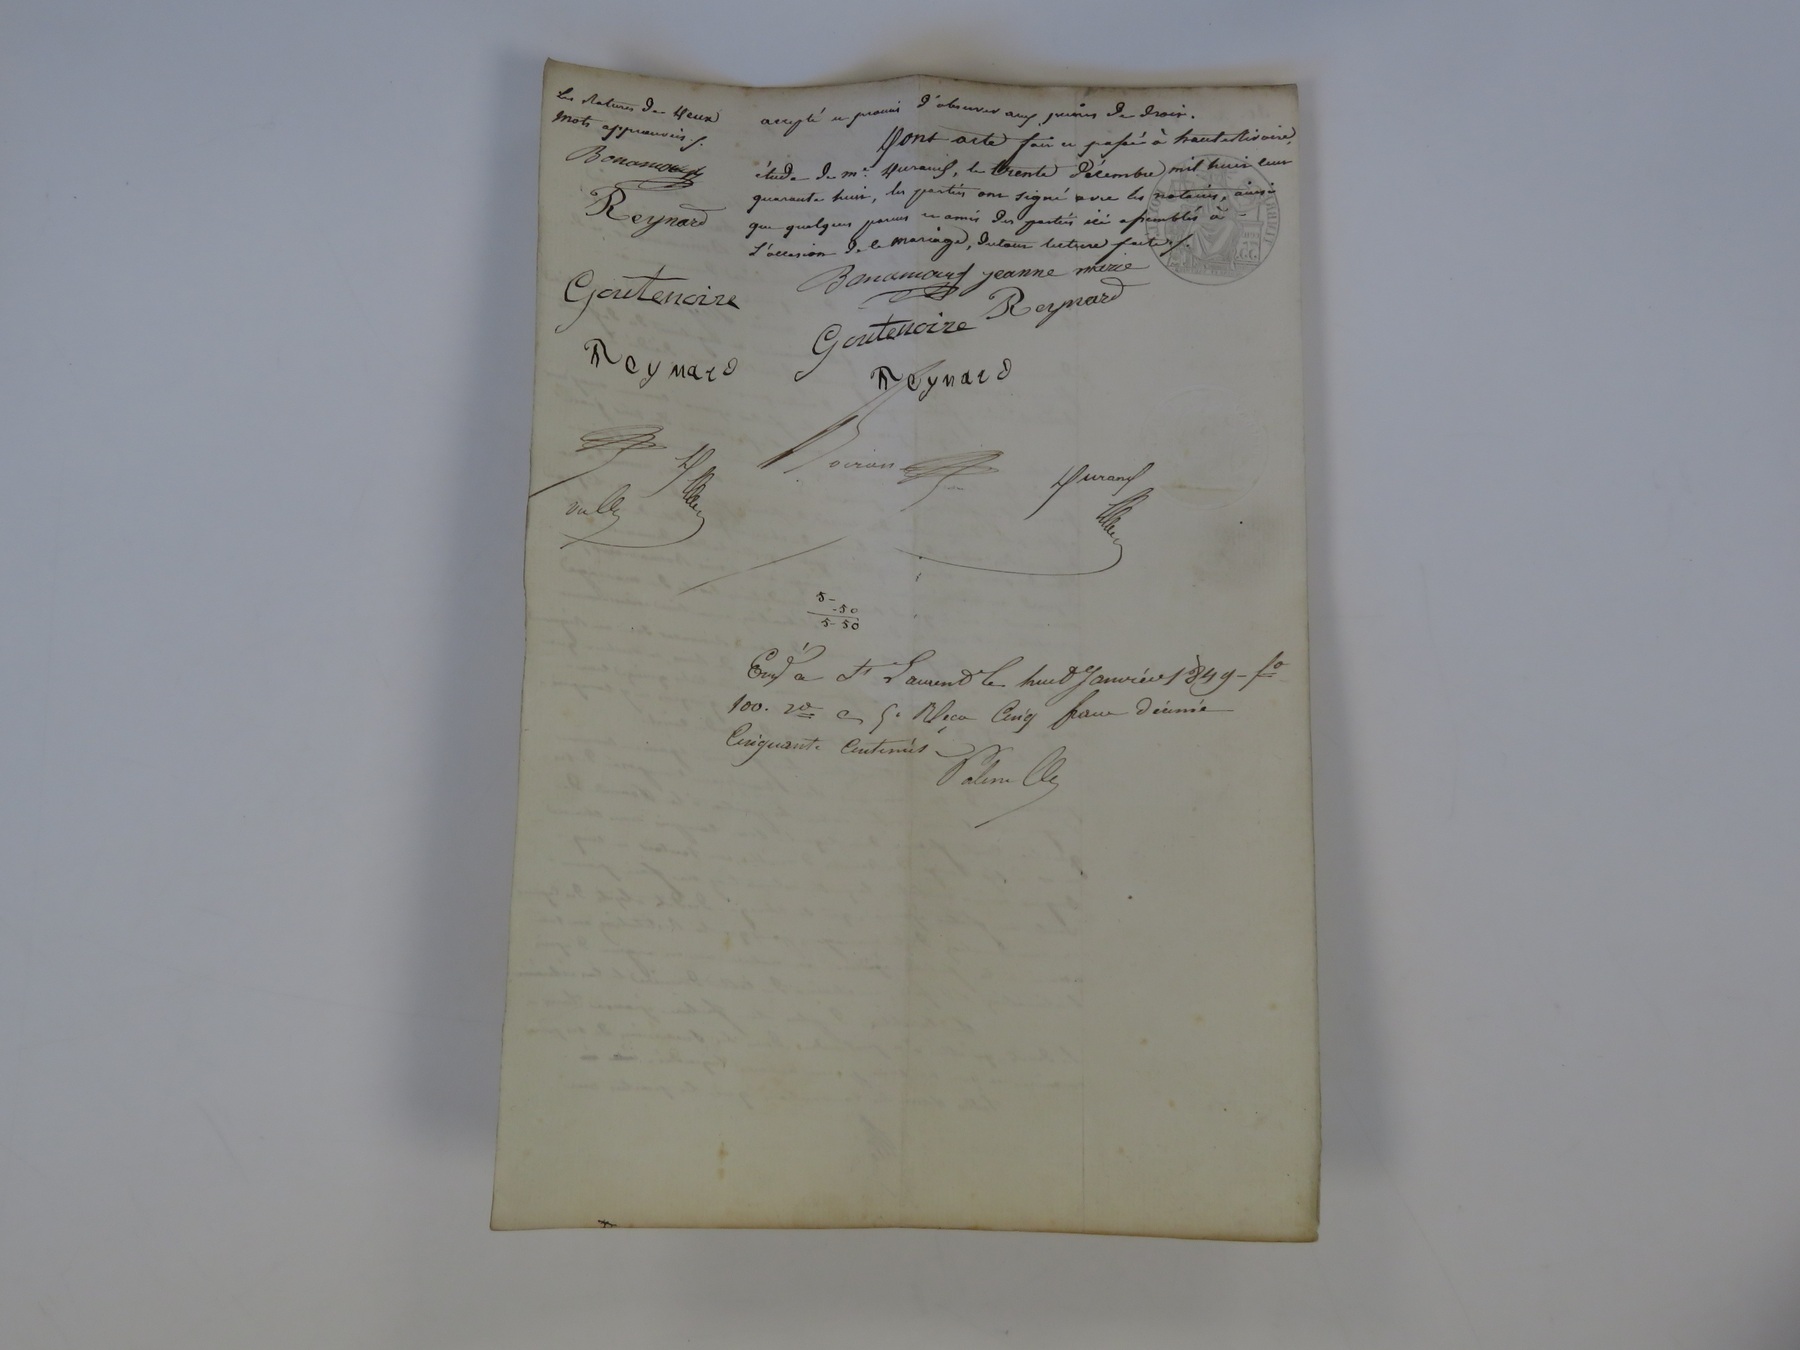 La rature de deux
mots approuvés.
Bonamour
Reynard
Goutenoire
Reynard
accepté et promis d'observer aux peines de droit.
Dont acte fait et passé à hauterivoire,
étude de me. Durand, le trente décembre mil huit cent
quarante huit, les parties ont signé avec les notaires, ainsi
que quelques parens et amis des parties ici assemblés à
l'occasion de ce mariage, de tout lecture faite.
Bonamour jeanne marie
Reynard
Goutenoire
Reynard
Durand
5-
-50
5-50
à St Laurent le huit Janvier 1849 fo
100. vo c. 5. Reçu Cinq francs décime
Cinquante Centimes